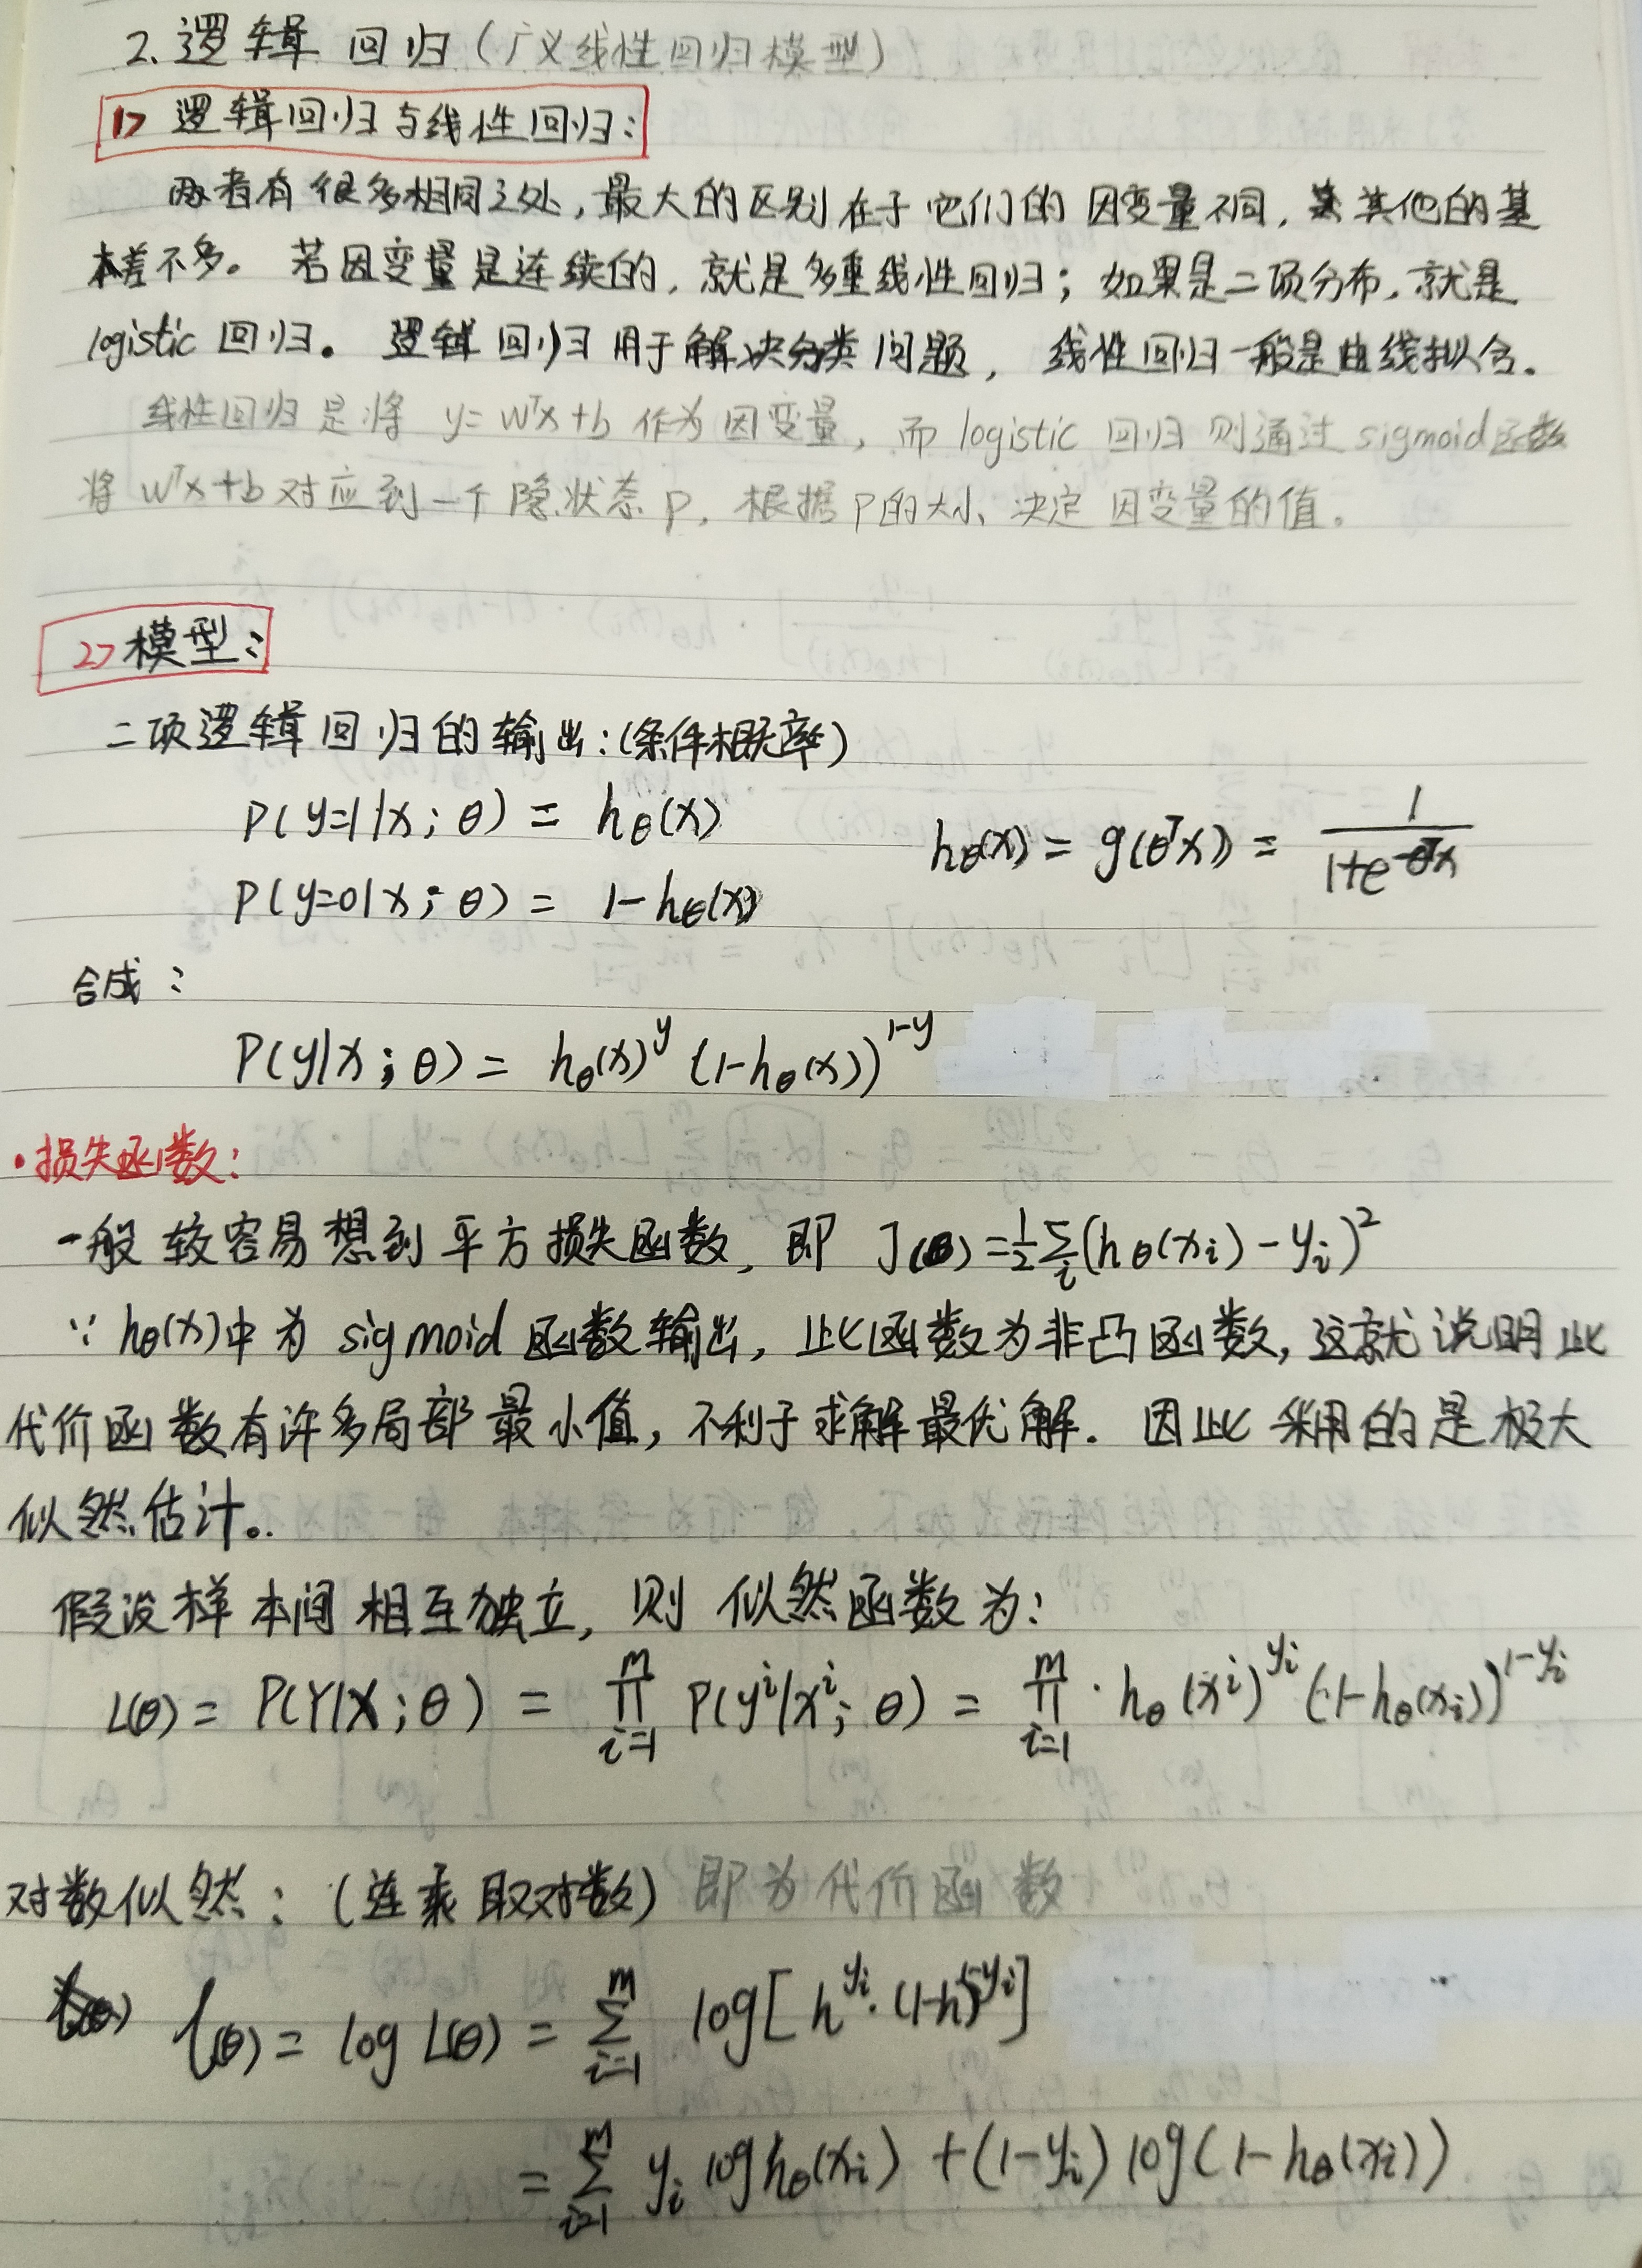 2. 逻辑回归（广义线性回归模型）
1> 逻辑回归与线性回归：
两者有很多相同之处，最大的区别在于它们的因变量不同，其他的基
本差不多。若因变量是连续的，就是多重线性回归；如果是二项分布，就是
logistic 回归。逻辑回归用于解决分类问题，线性回归一般是曲线拟合。
线性回归是将 y=wᵀx+b 作为因变量，而 logistic 回归则通过 sigmoid函数
将 wᵀx+b 对应到一个隐状态 p，根据 p的大小决定因变量的值。
2> 模型：
二项逻辑回归的输出：（条件概率）
P(y=1|x；θ) = hθ(x)
hθ(x) = g(θᵀx) = 1/(1+e^(-θᵀx))
P(y=0|x；θ) = 1-hθ(x)
合成：
P(y|x；θ) = hθ(x)^y (1-hθ(x))^(1-y)
·损失函数：
一般较容易想到平方损失函数，即 J(θ) = 1/2 Σ_i (hθ(x_i) - y_i)²
∵ hθ(x)中为 sigmoid 函数输出，此函数为非凸函数，这就说明此
代价函数有许多局部最小值，不利于求解最优解．因此采用的是极大
似然估计。
假设样本间相互独立，则似然函数为：
L(θ) = P(Y|X；θ) = ∏_{i=1}^m P(y^i|x^i；θ) = ∏_{i=1}^m · hθ(x^i)^(y_i) (1-hθ(x_i))^(1-y_i)
对数似然：（连乘取对数）即为代价函数
l(θ) = log L(θ) = Σ_{i=1}^m log[h^(y_i)·(1-h)^(1-y_i)]
= Σ_{i=1}^m y_i log hθ(x_i) + (1-y_i) log(1-hθ(x_i))